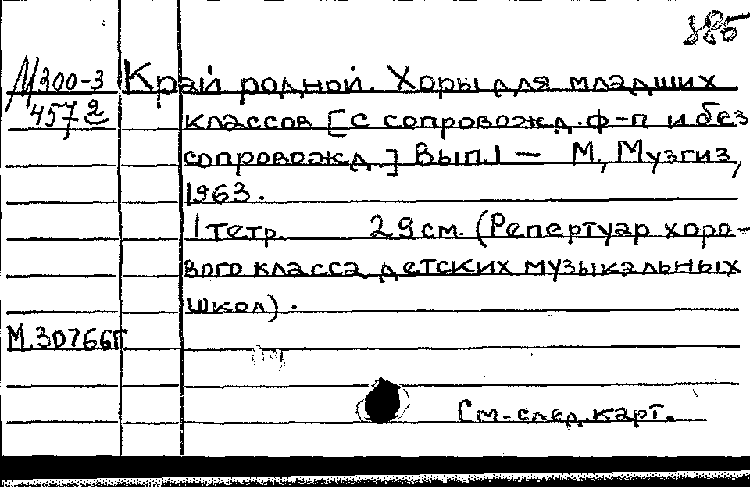 385
М300-3 Край родной. Хоры для младших
457 2 классов [с сопровожд. ф-п и без
сопровожд.] Вып.1 — М., Музгиз,
1963.
1 тетр. 29 см. (Репертуар хоро-
вого класса детских музыкальных
школ).
М.30766г
См. след. карт.